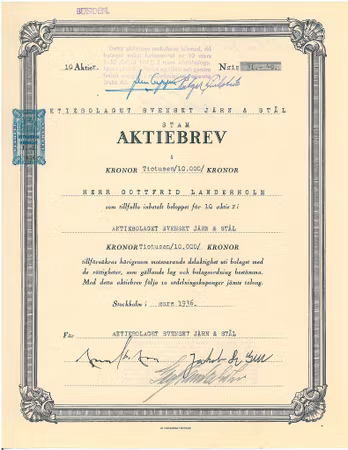 BUNDEN.
10 Aktier. N:ris 31-40.
AKTIEBOLAGET SVENSKT JÄRN & STÅL
STAM
AKTIEBREV
å
KRONOR Tiotusen/10.000/ KRONOR
HERR GOTTFRID LANDERHOLM
som tillfullo inbetalt beloppet för 10 aktier i
AKTIEBOLAGET SVENSKT JÄRN & STÅL
KRONOR Tiotusen/10.000/ KRONOR
tillförsäkras härigenom motsvarande delaktighet uti bolaget med
de rättigheter, som gällande lag och bolagsordning bestämma.
Med detta aktiebrev följa 10 utdelningskuponger jämte talong.
Stockholm i mars 1936.
För AKTIEBOLAGET SVENSKT JÄRN & STÅL